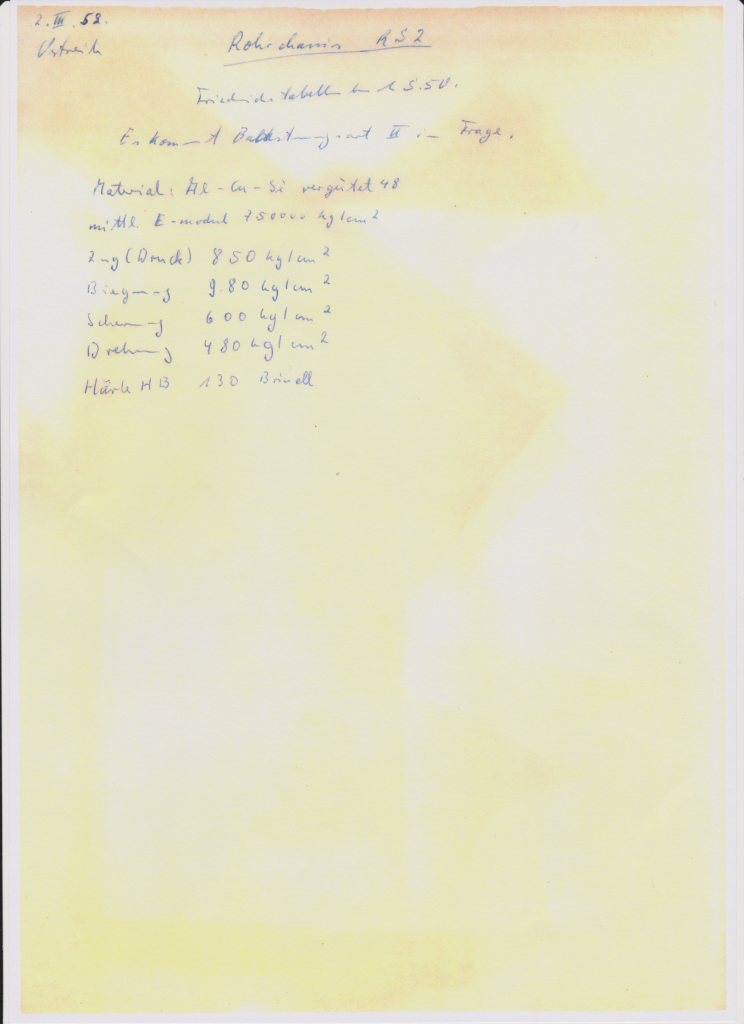 2. III. 58.
Rohrchassis RS2
Friedrichstabellen S. 50.
Es kommt Belastungsart II in Frage.
Material: Al-Cu-Si vergütet 48
mittl. E-modul 750000 kg/cm2
Zug (Druck) 850 kg/cm2
Biegung 980 kg/cm2
Scherung 600 kg/cm2
Drehung 480 kg/cm2
Härte HB 130 Brinell